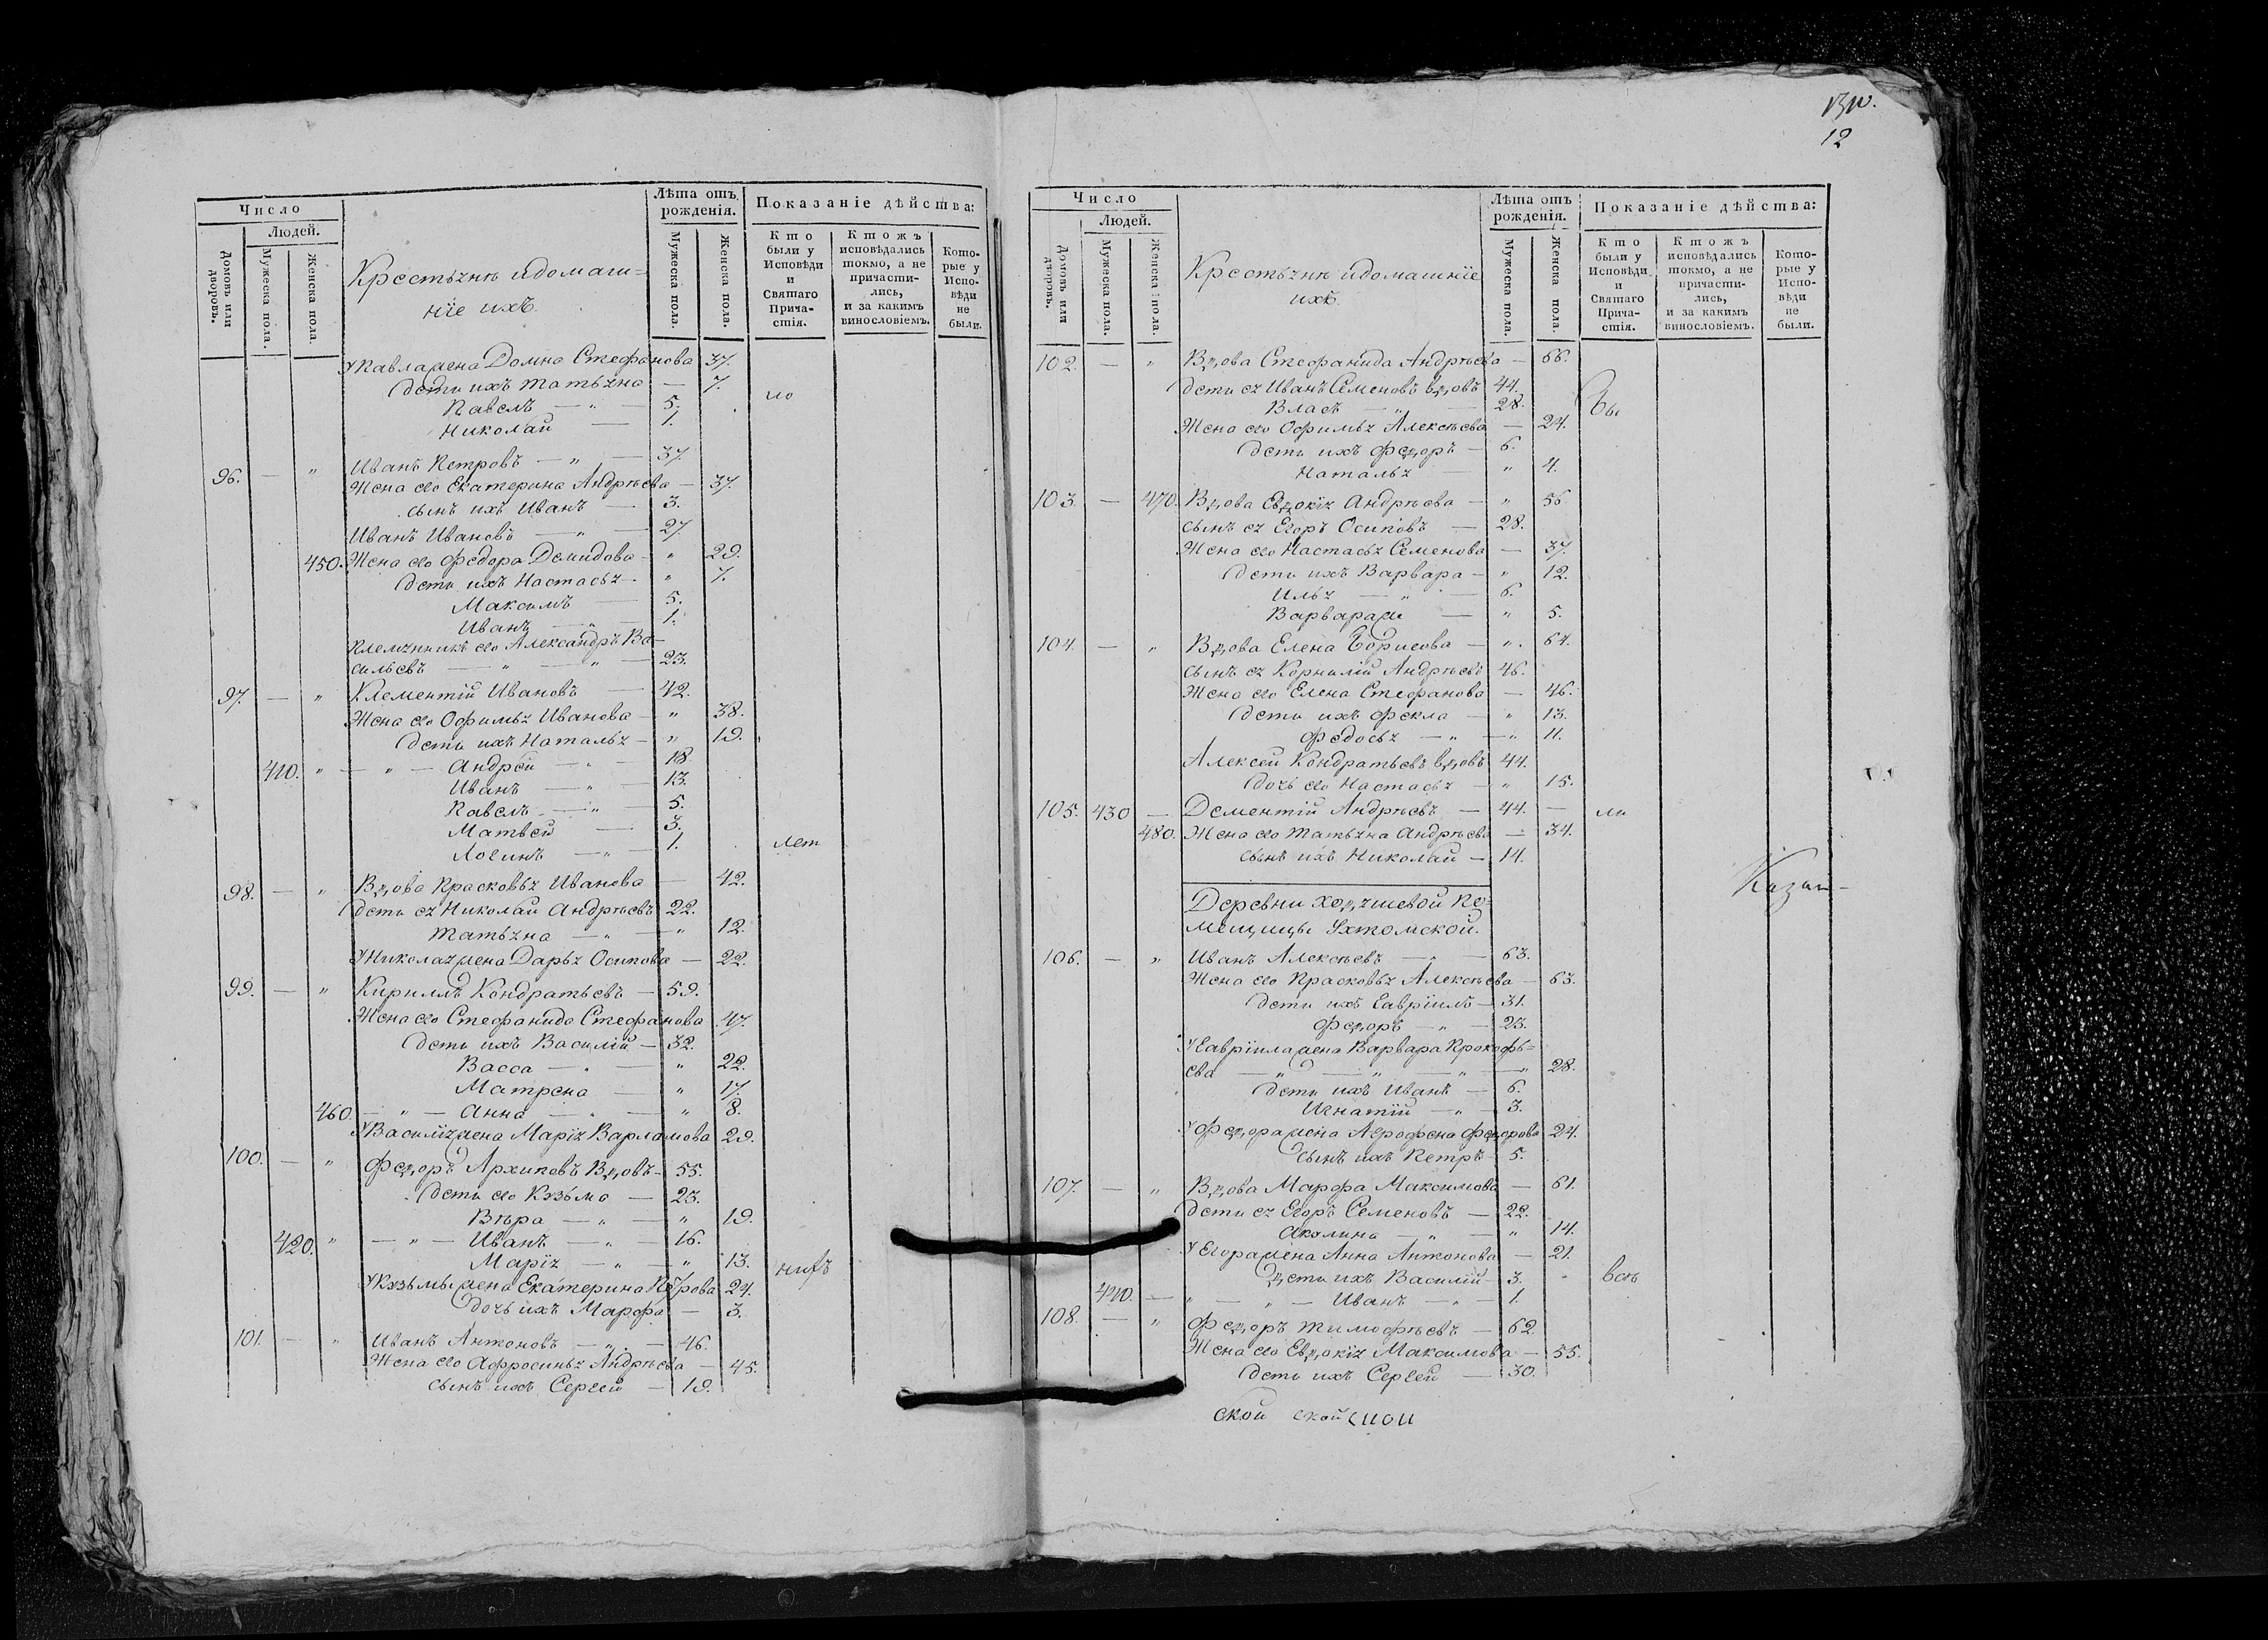 12
Число
Людей.
Домовъ или дворовъ.
Мужеска пола.
Женска пола.
Крестьяне идомаш=
ніе ихъ.
Лѣта отъ рожденія.
Мужеска пола.
Женска пола.
Показаніе дѣйства:
Кто были у Исповѣди и Святаго Причастія.
Ктожъ исповѣдались токмо, а не причастились, и за какимъ винословіемъ.
Которые у Исповѣди не были.
УПавла жена Домна Стефанова 37.
дети ихъ Татьяна — 7.
Павелъ — „ — 5.
Николай — 1.
96. — „ Иванъ Петровъ — „ — 37.
Жена его Екатерина Андрѣева — 37.
сынъ ихъ Иванъ — 3.
Иванъ Ивановъ — „ — 27.
450. Жена его Федора Демидова — „ 29.
дети ихъ Настасья — „ 7.
Максимъ — 5.
Иванъ — „ — 1.
Племянникъ его Александръ Ва-
сильевъ — „ — „ — 23.
97. — „ Клементій Ивановъ — 42.
Жена его Офимья Иванова — „ 38.
дети ихъ Наталья — „ 19.
410. „ — „ — Андрей — „ — 18.
Иванъ — „ — 13.
Павелъ — „ — 5.
Матвей — 3.
Логинъ — „ — 1. лет
98. — „ Вдова Прасковья Иванова — 42.
дети ея Николай Андрѣевъ 22.
Татьяна — „ — „ 12.
УНиколая жена Дарья Осипова — 22.
99. — „ Кириллъ Кондратьевъ — 59.
Жена его Стефанида Стефанова 47.
дети ихъ Василій — 32.
Васса — „ — „ 22.
Матрена — „ 17.
460. — „ — Анна — „ — „ 8.
УВасилія жена Марія Варламова 29.
100. — „ Федоръ Архиповъ Вдовъ — 55.
дети его Кузьма — 23.
Вѣра — „ — „ 19.
420. „ — „ — Иванъ — „ — 16.
Марія — „ — „ 13. нихъ
УКузьмы жена Екатерина Петрова 24.
дочь ихъ Марфа — 3.
101. — „ Иванъ Антоновъ — „ — 46.
Жена его Афросинья Андрѣева — 45.
сынъ ихъ Сергей — 19.
Число
Людей.
Домовъ или дворовъ.
Мужеска пола.
Женска пола.
Крестьяне идомашніе
ихъ.
Лѣта отъ рожденія.
Мужеска пола.
Женска пола.
Показаніе дѣйства:
Кто были у Исповѣди и Святаго Причастія.
Ктожъ исповѣдались токмо, а не причастились, и за какимъ винословіемъ.
Которые у Исповѣди не были.
102. — „ Вдова Стефанида Андрѣева — 66.
дети ея Иванъ Семеновъ вдовъ 44.
Власъ — „ — 28. Бы
Жена его Офимья Алексѣева — 24.
дети ихъ Федоръ — 6.
Наталья — „ 4.
103. — 470. Вдова Евдокія Андрѣева — „ 56
сынъ ея Егоръ Осиповъ — 28.
Жена его Настасья Семенова — 37.
дети ихъ Варвара — „ 12.
Илья — „ — 6.
Варвара же — „ 5.
104. — „ Вдова Елена Борисова — „. 64.
сынъ ея Корнилій Андрѣевъ 46.
Жена его Елена Стефанова — 46.
дети ихъ Фекла — „ 13.
Федосья — „ — „ 11.
Алексей Кондратьевъ вдовъ 44.
дочь его Настасья — „ 15.
105. 430 — Дементій Андрѣевъ — 44. — ли
480. Жена его Татьяна Андрѣева — 34.
сынъ ихъ Николай — 14.
Казан-
Деревни Ходяшевой По=
мещицы Ухтомской.
106. — „ Иванъ Алексѣевъ — „ — 63.
Жена его Прасковья Алексѣева — 63.
дети ихъ Гавріилъ — 31.
Федоръ — „ — 23.
УГавріила жена Варвара Прокофь=
ева — „ — „ — „ — „ 28.
дети ихъ Иванъ — 6.
Игнатій — „ — 3.
УФедора жена Агрофена Федорова 24.
сынъ ихъ Петръ — 5.
107. — „ Вдова Марфа Максимова — 61.
дети ея Егоръ Семеновъ — 22.
Акулина — „ — „ 14.
УЕгора жена Анна Антонова — 21.
дети ихъ Василій — 3. „ всѣ
440. — „ — „ — Иванъ — „ — 1.
108. — „ Федоръ Тимофѣевъ — 62.
Жена его Евдокія Максимова — 55.
дети ихъ Сергей — 30.
ской ской